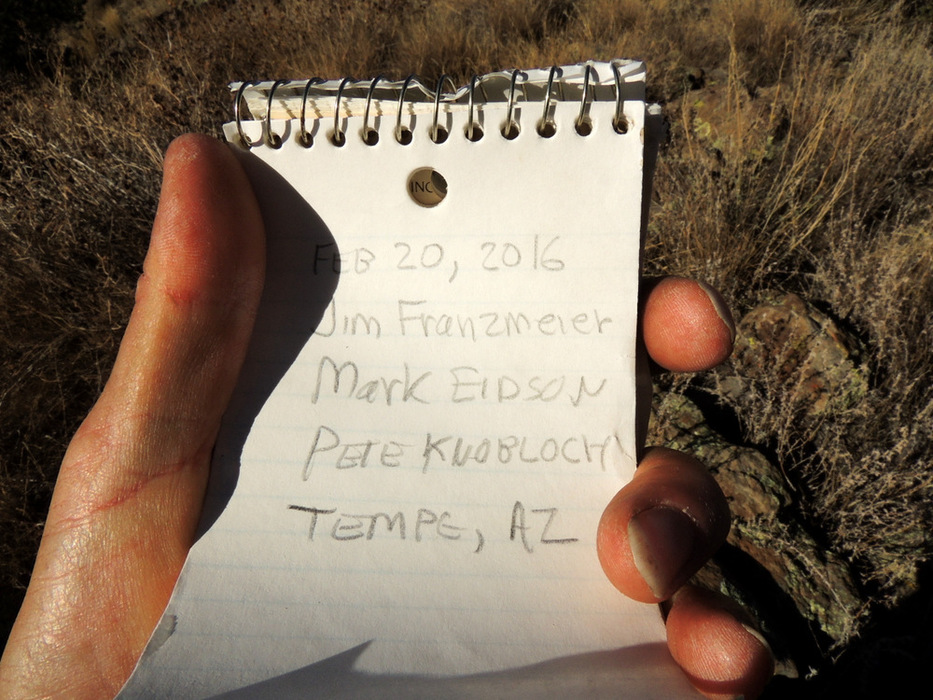 INC
FEB 20, 2016
Jim Franzmeier
Mark EIDSON
PETE KNOBLOCH
TEMPE, AZ